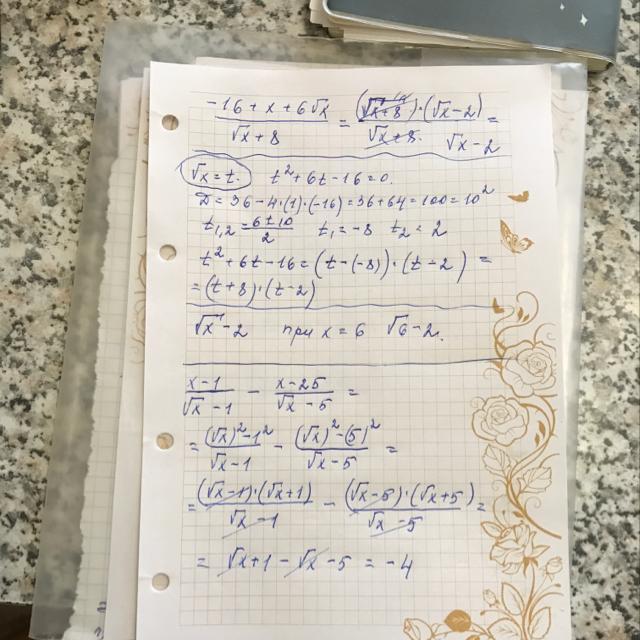 (-16+x+6√x)/(√x+8) = ((√x+8)·(√x-2))/(√x+8) = √x-2
√x=t. t²+6t-16=0.
D=36-4·(1)·(-16)=36+64=100=10²
t1,2 = (-6±10)/2 t1=-8 t2=2
t²+6t-16=(t-(-8))·(t-2)=
=(t+8)·(t-2)
√x-2 при x=6 √6-2.
(x-1)/(√x-1) - (x-25)/(√x-5) =
= ((√x)²-1²)/(√x-1) - ((√x)²-(5)²)/(√x-5) =
= ((√x-1)·(√x+1))/(√x-1) - ((√x-5)·(√x+5))/(√x-5) =
= √x+1-√x-5=-4